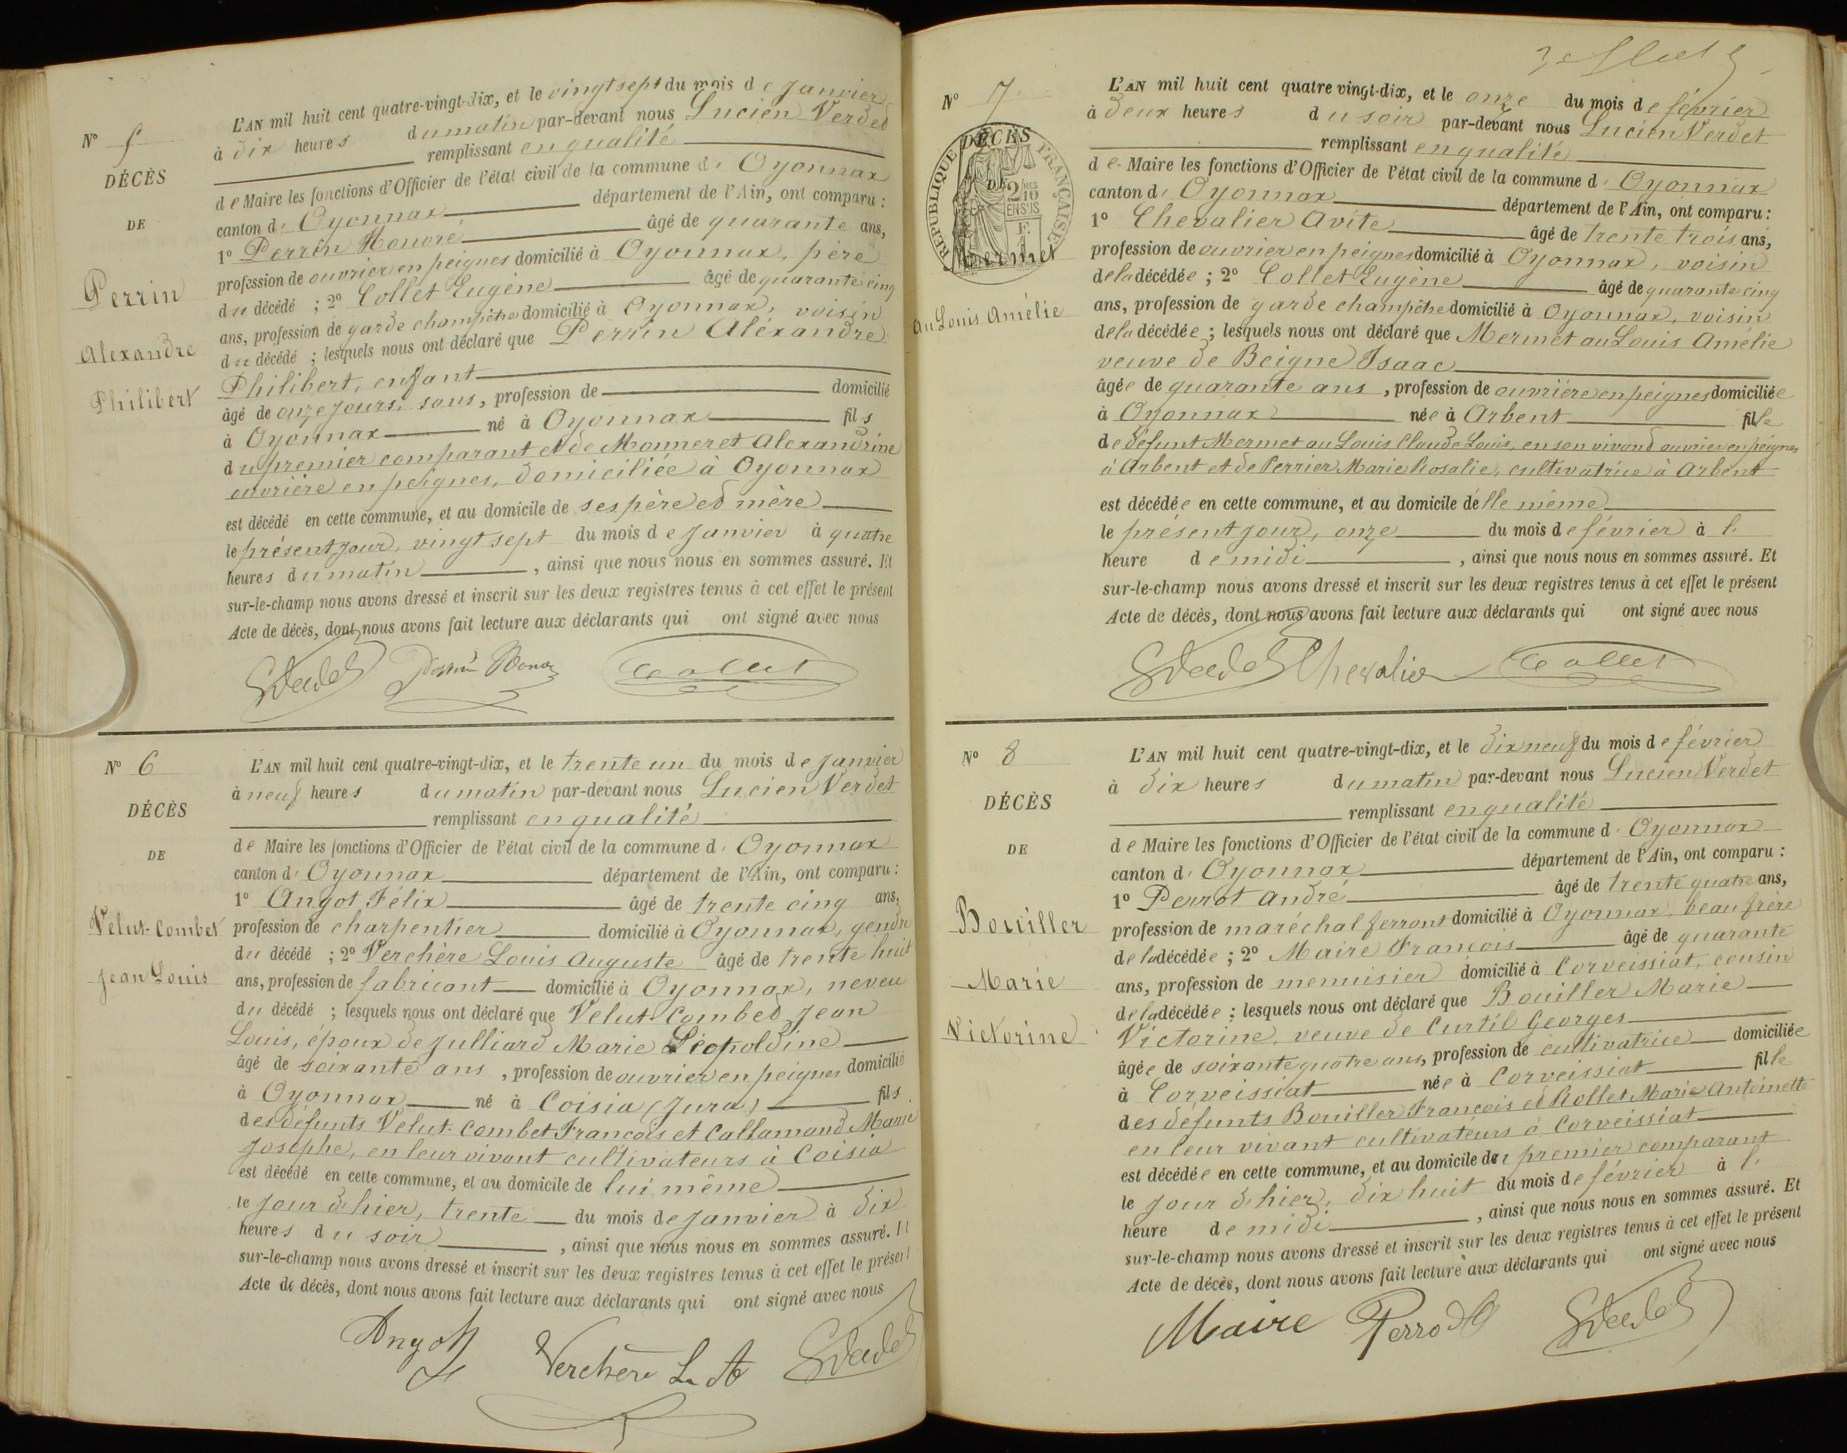 N° 5
DÉCÈS
DE
Perrin
Alexandre
Philibert
L'AN mil huit cent quatre-vingt-dix, et le vingt sept du mois de janvier
à dix heures du matin par-devant nous Lucien Verdet
remplissant en qualité
de Maire les fonctions d'Officier de l'état civil de la commune d' Oyonnax
canton d' Oyonnax département de l'Ain, ont comparu :
1° Perrin Honoré âgé de quarante ans,
profession de ouvrier en peignes domicilié à Oyonnax, père
du décédé ; 2° Collet Eugène âgé de quarante cinq
ans, profession de garde champêtre domicilié à Oyonnax, voisin
du décédé ; lesquels nous ont déclaré que Perrin Aléxandre
Philibert, enfant
âgé de onze jours, sans, profession de domicilié
à Oyonnax né à Oyonnax fils
du premier comparant et de Monneret Alexandrine
ouvrière en peignes, domiciliée à Oyonnax
est décédé en cette commune, et au domicile de ses père et mère
le présent jour, vingt sept du mois de janvier à quatre
heures du matin , ainsi que nous nous en sommes assuré. Et
sur-le-champ nous avons dressé et inscrit sur les deux registres tenus à cet effet le présent
Acte de décès, dont nous avons fait lecture aux déclarants qui ont signé avec nous
Perrin Honoré Collet
N° 6
DÉCÈS
DE
Velut-Combet
Jean Louis
L'AN mil huit cent quatre-vingt-dix, et le trente un du mois de janvier
à neuf heures du matin par-devant nous Lucien Verdet
remplissant en qualité
de Maire les fonctions d'Officier de l'état civil de la commune d' Oyonnax
canton d' Oyonnax département de l'Ain, ont comparu :
1° Angot Félix âgé de trente cinq ans,
profession de charpentier domicilié à Oyonnax, gendre
du décédé ; 2° Verchère Louis Auguste âgé de trente huit
ans, profession de fabricant domicilié à Oyonnax, neveu
du décédé ; lesquels nous ont déclaré que Velut-Combet Jean
Louis, époux de Julliard Marie Léopoldine
âgé de soixante ans , profession de ouvrier en peignes domicilié
à Oyonnax né à Coisia (Jura) fils
des défunts Velut-Combet François et Callamand Marie
Josephe, en leur vivant cultivateurs à Coisia
est décédé en cette commune, et au domicile de lui même
le jour d'hier, trente du mois de janvier à dix
heures du soir , ainsi que nous nous en sommes assuré. Et
sur-le-champ nous avons dressé et inscrit sur les deux registres tenus à cet effet le présent
Acte de décès, dont nous avons fait lecture aux déclarants qui ont signé avec nous
Angot Verchère L. A
N° 7
DÉCÈS
DE
RÉPUBLIQUE FRANÇAISE
Mermet
au Louis Amélie
L'AN mil huit cent quatre vingt-dix, et le onze du mois de février
à deux heures du soir par-devant nous Lucien Verdet
remplissant en qualité
de Maire les fonctions d'Officier de l'état civil de la commune d' Oyonnax
canton d' Oyonnax département de l'Ain, ont comparu :
1° Chevalier Avite âgé de trente trois ans,
profession de ouvrier en peignes domicilié à Oyonnax, voisin
de la décédée ; 2° Collet Eugène âgé de quarante cinq
ans, profession de garde champêtre domicilié à Oyonnax, voisin
de la décédée ; lesquels nous ont déclaré que Mermet au Louis Amélie
veuve de Beigne Isaac
âgée de quarante ans , profession de ouvrière en peignes domiciliée
à Oyonnax née à Arbent fille
de défunt Mermet au Louis Claude Louis, en son vivand ouvrier en peignes
à Arbent et de Perrier Marie Rosalie, cultivatrice à Arbent
est décédée en cette commune, et au domicile d'elle même
le présent jour, onze du mois de février à l'
heure de midi , ainsi que nous nous en sommes assuré. Et
sur-le-champ nous avons dressé et inscrit sur les deux registres tenus à cet effet le présent
Acte de décès, dont nous avons fait lecture aux déclarants qui ont signé avec nous
Chevalier Collet
N° 8
DÉCÈS
DE
Bouiller
Marie
Victorine
L'AN mil huit cent quatre-vingt-dix, et le dix neuf du mois de février
à dix heures du matin par-devant nous Lucien Verdet
remplissant en qualité
de Maire les fonctions d'Officier de l'état civil de la commune d' Oyonnax
canton d' Oyonnax département de l'Ain, ont comparu :
1° Perrot André âgé de trente quatre ans,
profession de maréchal ferrant domicilié à Oyonnax, beau frère
de la décédée ; 2° Maire François âgé de quarante
ans, profession de menuisier domicilié à Corveissiat, cousin
de la décédée ; lesquels nous ont déclaré que Bouiller Marie
Victorine, veuve de Curtil Georges
âgée de soixante quatre ans, profession de cultivatrice domiciliée
à Corveissiat née à Corveissiat fille
des défunts Bouiller François et Rollet Marie Antoinette
en leur vivant cultivateurs à Corveissiat
est décédée en cette commune, et au domicile du premier comparant
le jour d'hier, dix huit du mois de février à l'
heure de midi , ainsi que nous nous en sommes assuré. Et
sur-le-champ nous avons dressé et inscrit sur les deux registres tenus à cet effet le présent
Acte de décès, dont nous avons fait lecture aux déclarants qui ont signé avec nous
Maire Perrot